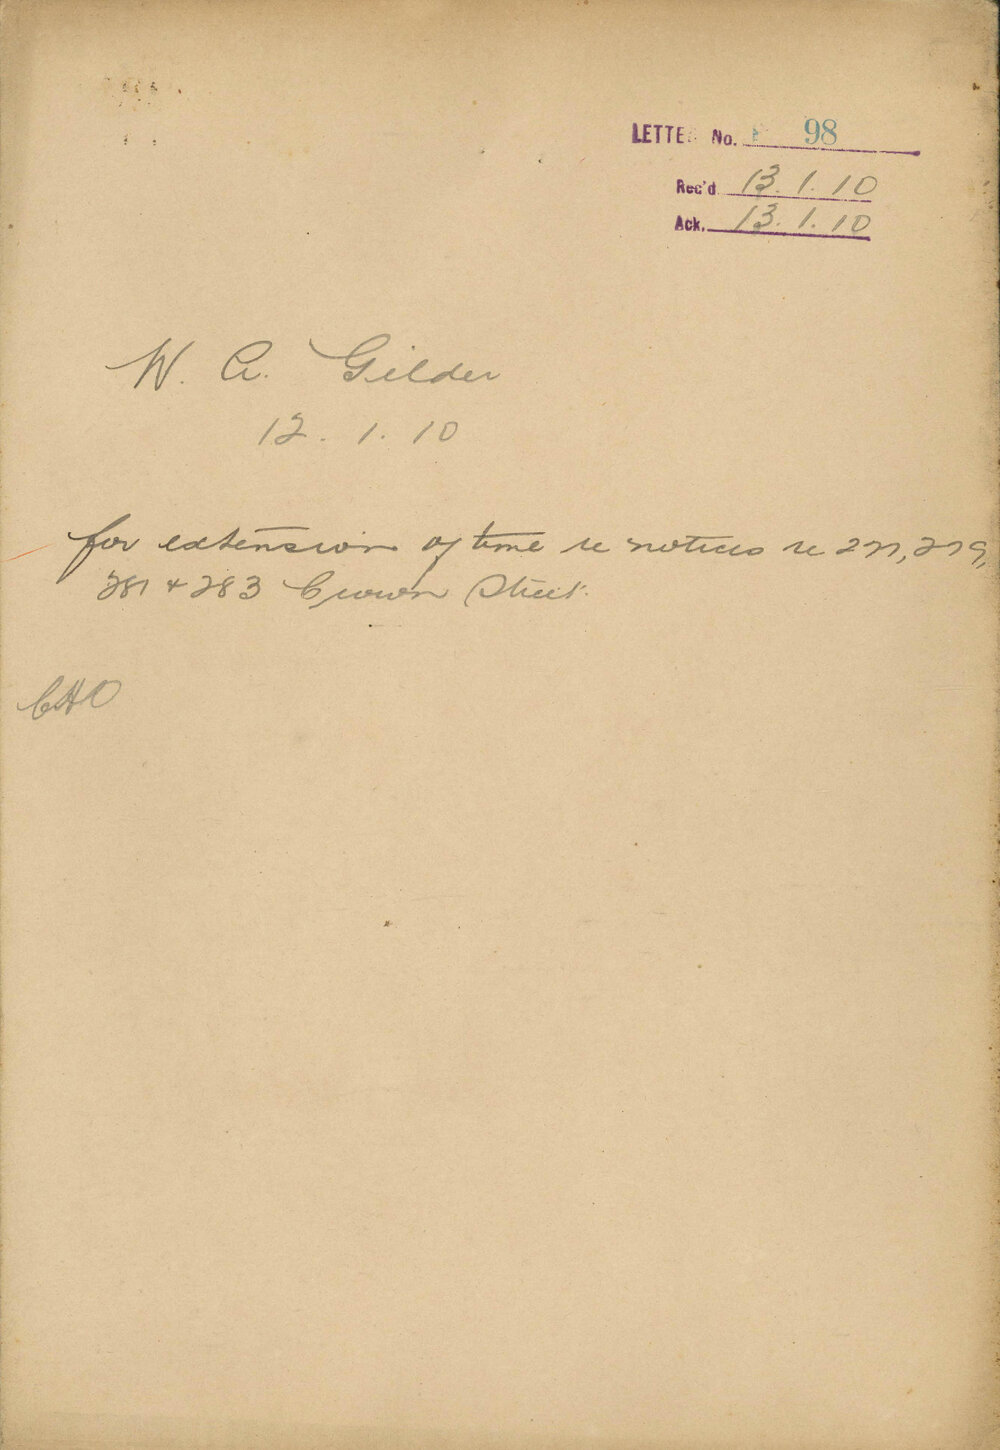 LETTER No. 98
Rec'd 13.1.10
Ack. 13.1.10
W. A. Gilder
12.1.10
for extension of time re notices re 277, 279,
281 & 283 Crown Street.
CHO